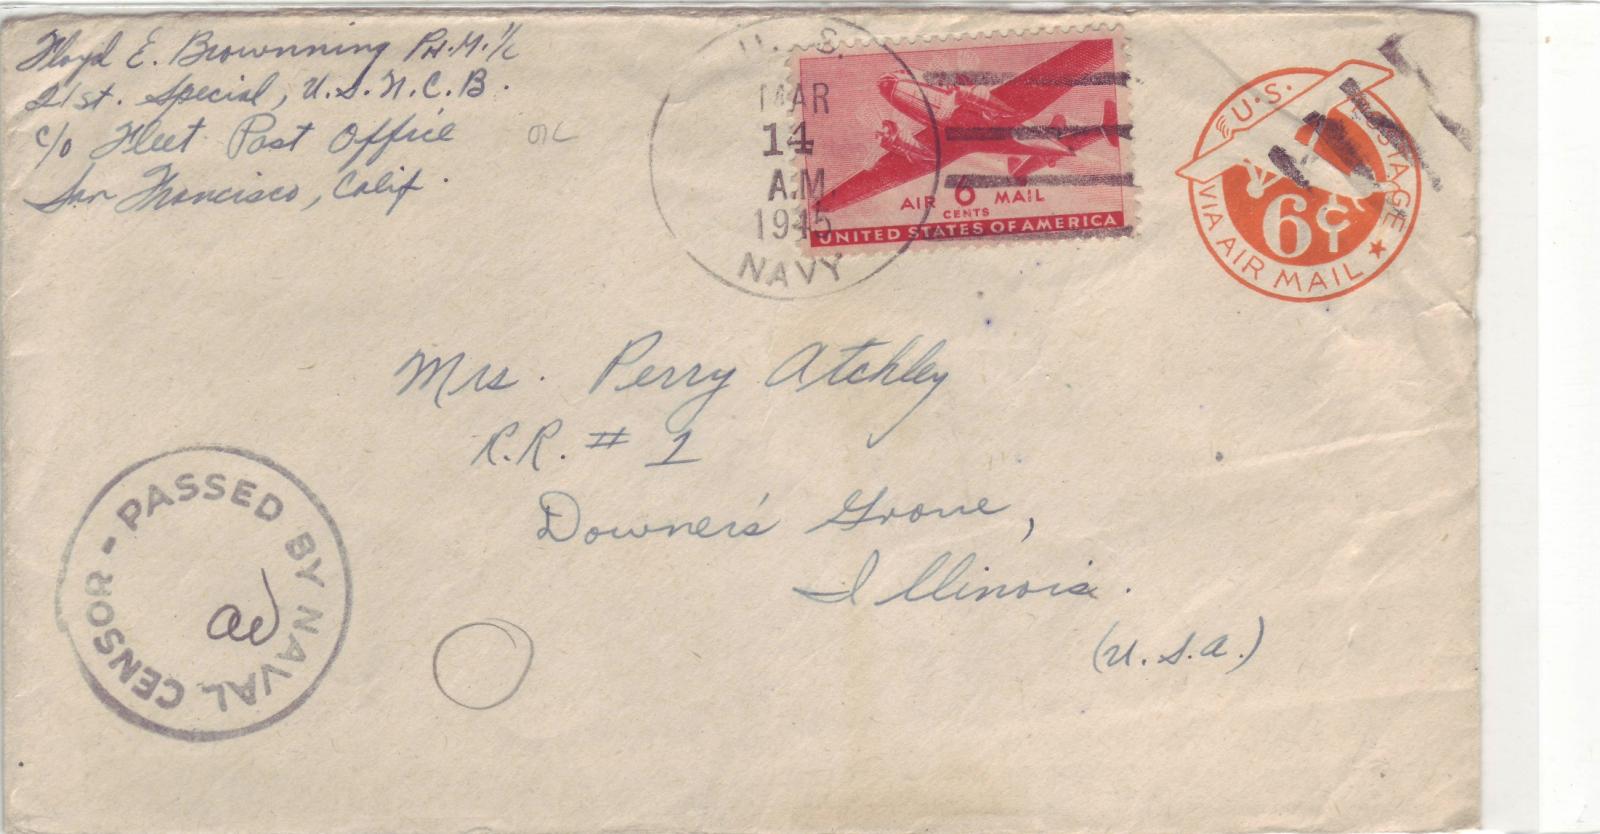 Floyd E. Brownning PH.M. 1/c
21st. Special, U.S.N.C.B.
c/o Fleet Post Office
San Francisco, Calif.
U. S.
MAR
14
A.M.
1945
NAVY
AIR 6 MAIL
CENTS
UNITED STATES OF AMERICA
U.S. POSTAGE
6¢
VIA AIR MAIL
Mrs. Perry Atchley
R.R. # 1
Downer's Grove,
Illinois.
(U.S.A.)
PASSED BY NAVAL CENSOR